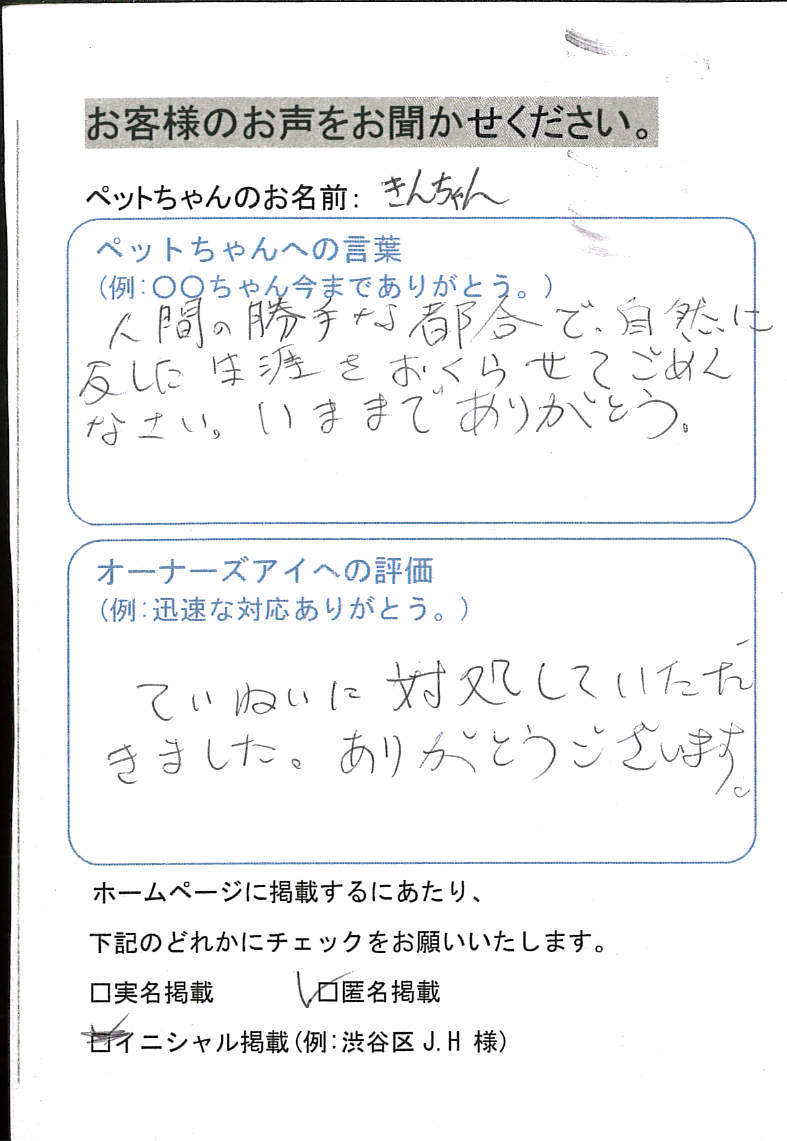 お客様のお声をお聞かせください。
ペットちゃんのお名前: きんちゃん
ペットちゃんへの言葉
(例:〇〇ちゃん今までありがとう。)
人間の勝手な都合で、自然に
反した生涯をおくらせてごめん
なさい。いままでありがとう。
オーナーズアイへの評価
(例:迅速な対応ありがとう。)
ていねいに対処していただ
きました。ありがとうございます。
ホームページに掲載するにあたり、
下記のどれかにチェックをお願いいたします。
□実名掲載 □匿名掲載
□イニシャル掲載(例:渋谷区 J.H 様)